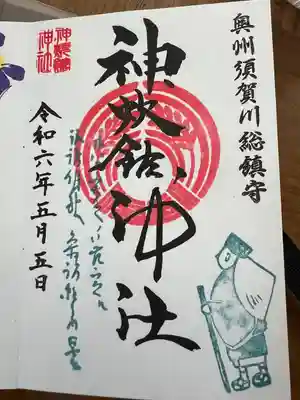 奥州須賀川総鎮守
神炊館神社
神炊館
神社
令和六年五月五日